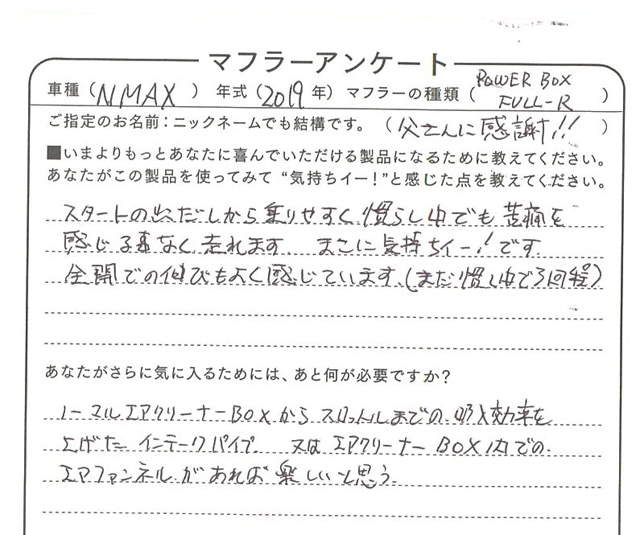 マフラーアンケート
車種（NMAX）年式（2019年）マフラーの種類（POWER BOX FULL-R）
ご指定のお名前：ニックネームでも結構です。（父さんに感謝!!）
■いまよりもっとあなたに喜んでいただける製品になるために教えてください。
あなたがこの製品を使ってみて“気持ちイー！”と感じた点を教えてください。
スタートの出だしから乗りやすく慣らし中でも苦痛を
感じる事なく走れます。まさに気持ちイー！です
全開での伸びもよく感じています。(まだ慣し中で3回程)
あなたがさらに気に入るためには、あと何が必要ですか？
ノーマルエアクリーナーBOXからスロットルまでの吸入効率を
上げたインテークパイプ、又はエアクリーナーBOX内での
エアファンネルがあれば楽しいと思う。